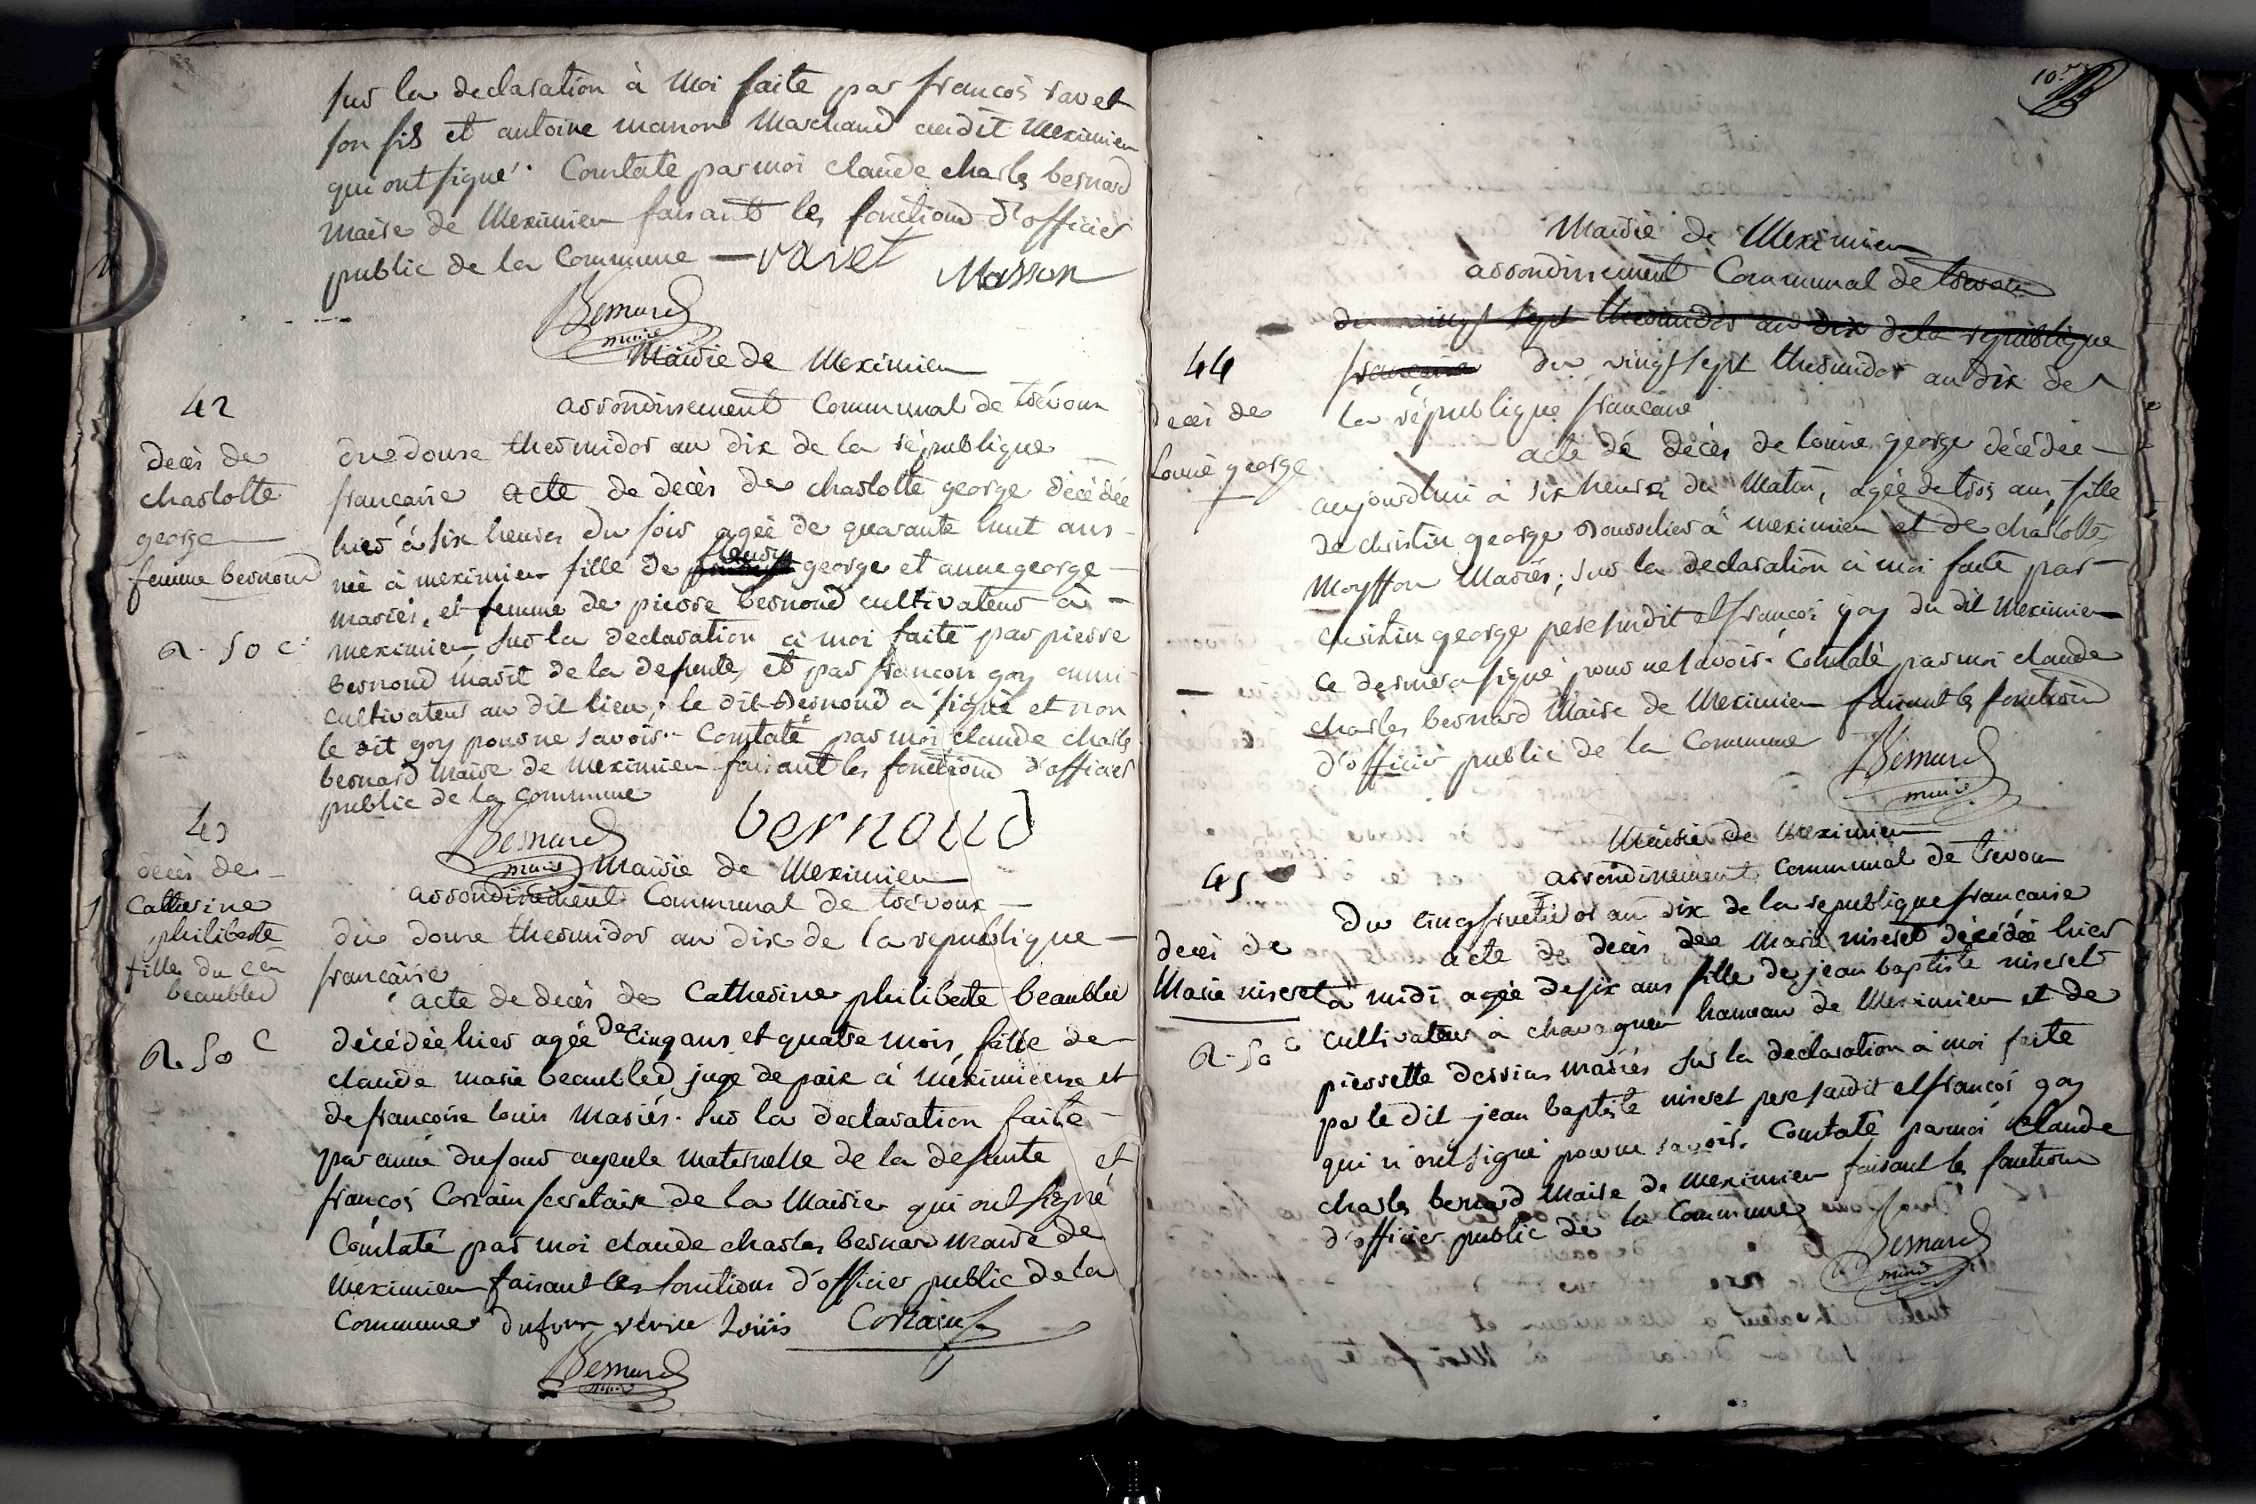 sur la declaration à Moi faite par francois ravet
son fils et antoine manon Marchand audit Meximieu
qui ont signé. Constaté par moi claude charles bernard
maire de Meximieu faisant les fonctions d'officier
public de la Commune — ravet
Masson
Bernard
maire
Mairie de Meximieu
arrondissement Communal de trévoux
42
decès de
charlotte
george
femme bernoud
2 - 50 c
du douze thermidor an dix de la république
francaise acte de decès de charlotte george décédée
hier à six heures du soir agée de quarante huit ans
née à meximieu fille de fleury george et anne george
mariés, et femme de pierre bernoud cultivateur à
meximieu, sur la declaration à moi faite par pierre
bernoud marit de la defunte, et par francois goy aussi
cultivateur au dit lieu, le dit bernoud a signé et non
le dit goy pour ne savoir. Constaté par moi claude charles
bernard maire de meximieu faisant les fonctions d'officier
public de la commune
bernoud
Bernard
maire
Mairie de Meximieu
arrondissement Communal de trévoux
43
decès de
Catherine
philiberte
fille du cen
beaubled
2. 50 c
du douze thermidor an dix de la republique
francaise
acte de decès de Catherine philiberte beaubled
décédée hier agée de cinq ans et quatre mois, fille de
claude marie beaubled juge de paix à Méximieux et
de francoise louis mariés. Sur la declaration faite
par anne dufour ayeule maternelle de la défunte et
francois Corrain secretaire de la Mairie qui ont signé
Constaté par moi claude charles bernard maire de
Meximieu faisant les fonctions d'officier public de la
Commune dufour veuve Louis Corrain
Bernard
maire
10
Mairie de Meximieu
arrondissement Communal de trevoux
du vingt sept thermidor an dix de la republique
francaise du vingt sept thermidor an dix de
la république francaise
44
decès de
louise george
acte de décès de louise george décédée
aujourdhui à six heures du Matin, agée de trois ans, fille
de christin george bourrelier à meximieu et de charlotte
Moysson Mariés; sur la declaration à moi faite par
christin george pere susdit et francois goy du dit Meximieu
ce dernier a signé pour ne savoir. Constaté par moi claude
charles bernard Maire de Meximieu faisant les fonctions
d'officier public de la Commune
Bernard
maire
Mairie de Meximieu
arrondissement Communal de trevoux
45
decès de
Marie niseret
2 - 50 c
du cinq fructidor an dix de la republique francaise
acte de decès de Marie niseret décédée hier
à midi agée de six ans fille de jean baptiste niseret
cultivateur à chavagneu hameau de Meximieu et de
pierrette dessias mariés sur la declaration à moi faite
par le dit jean baptiste niseret pere susdit et francois goy
qui n'ont signé pour ne savoir. Constaté par moi Claude
charles bernard Maire de Meximieu faisant les fonctions
d'officier public de la Commune
Bernard
maire